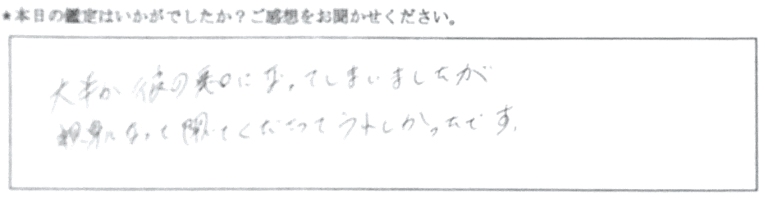 ★本日の鑑定はいかがでしたか？ご感想をお聞かせください。
大半が彼の悪口になってしまいましたが
親身になって聞いてくださってうれしかったです。